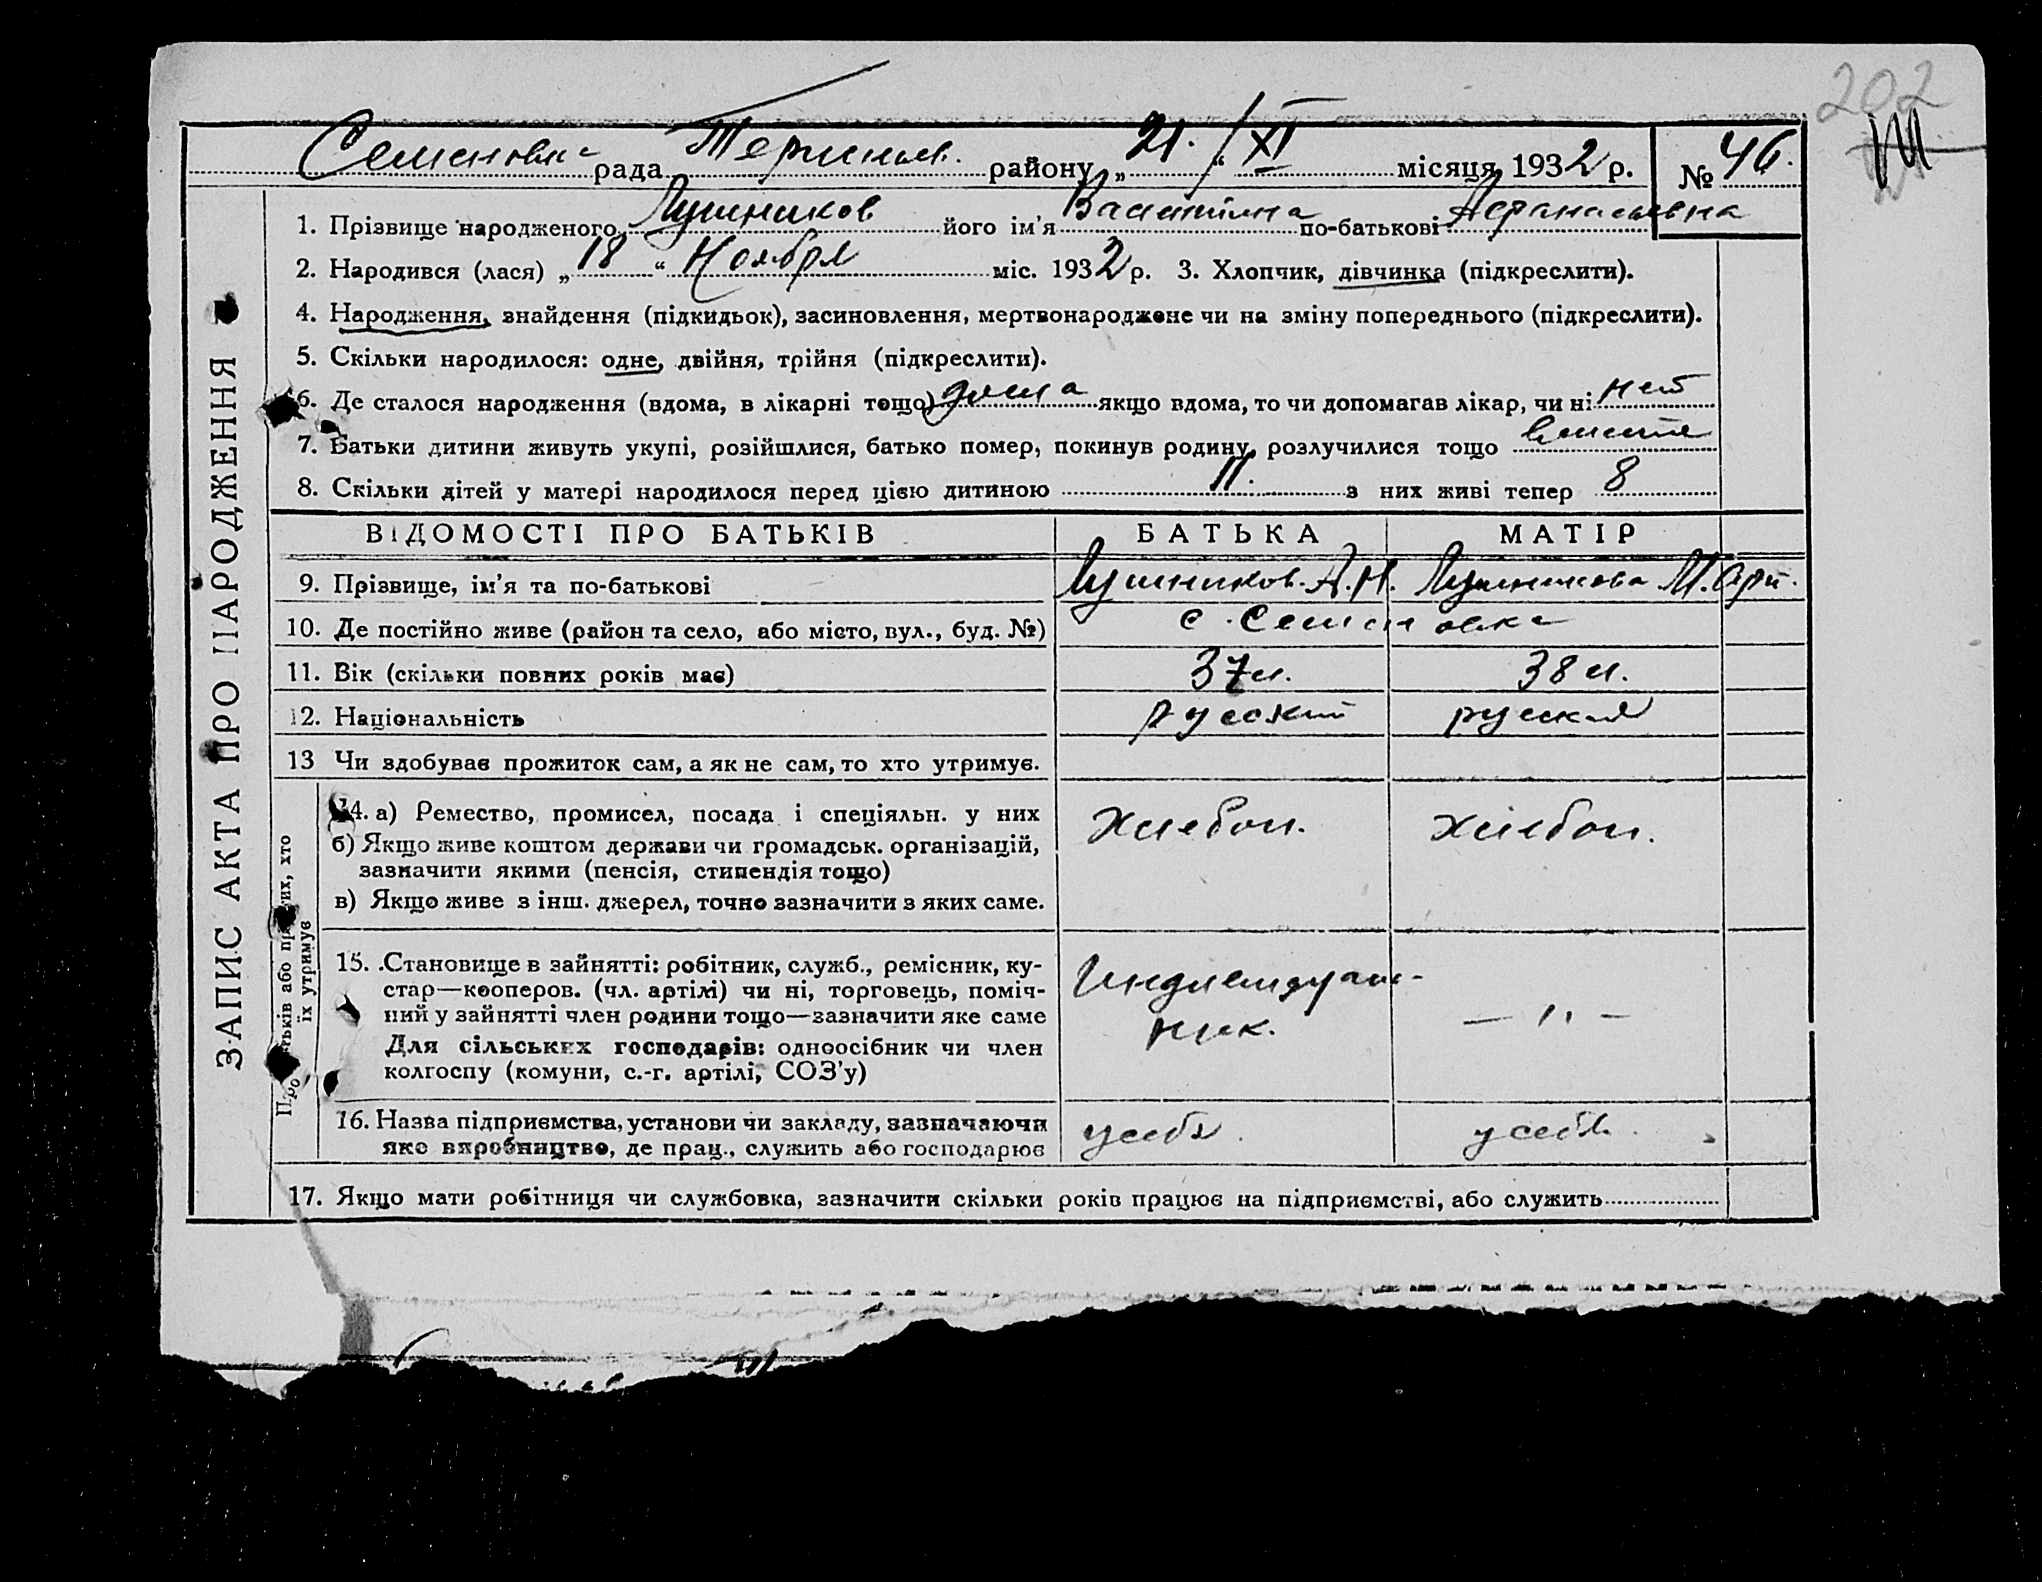 202
Семеновка рада район​у „21.“ XI місяця 1932 р. № 46.
1. Прізвище народженого Лушников його ім'я по-батькові Афанасьевна
2. Народився (лася) „18“ Ноября міс. 1932 р. 3. Хлопчик, дівчинка (підкреслити).
4. Народження, знайдення (підкидьок), засиновлення, мертвонароджене чи на зміну попереднього (підкреслити).
5. Скільки народилося: одне, двійня, трійня (підкреслити).
6. Де сталося народження (вдома, в лікарні тощо) дома якщо вдома, то чи допомагав лікар, чи ні нет
7. Батьки дитини живуть укупі, розійшлися, батько помер, покинув родину, розлучилися тощо вместе
8. Скільки дітей у матері народилося перед цією дитиною 11. з них живі тепер 8
ЗАПИС АКТА ПРО НАРОДЖЕННЯ
ВІДОМОСТІ ПРО БАТЬКІВ БАТЬКА МАТІР
9. Прізвище, ім'я та по-батькові Лушников. А. Н. Лушникова М.
10. Де постійно живе (район та село, або місто, вул., буд. №) с. Семеновка
11. Вік (скільки повних років має) 37 л. 38 л.
12. Національність русский русская
13 Чи здобував прожиток сам, а як не сам, то хто утримує.
14. а) Ремество, промисел, посада і спеціяльн. у них Хлебоп. хлебоп.
б) Якщо живе коштом держави чи громадськ. організацій,
зазначити якими (пенсія, стипендія тощо)
в) Якщо живе з інш. джерел, точно зазначити з яких саме.
їх утримує
15. Становище в зайнятті: робітник, служб., ремісник, ку-
стар—кооперов. (чл. артілі) чи ні, торговець, поміч-
ний у зайнятті член родини тощо—зазначити яке саме
Для сільських господарів: одноосібник чи член
колгоспу (комуни, с.-г. артілі, СОЗ'у)
Индивидуаль-
ник. — „ —
16. Назва підприємства, установи чи закладу, зазначаючи
яке виробництво, де прац., служить або господарює
у себя. у себя.
17. Якщо мати робітниця чи службовка, зазначити скільки років працює на підприємстві, або служить